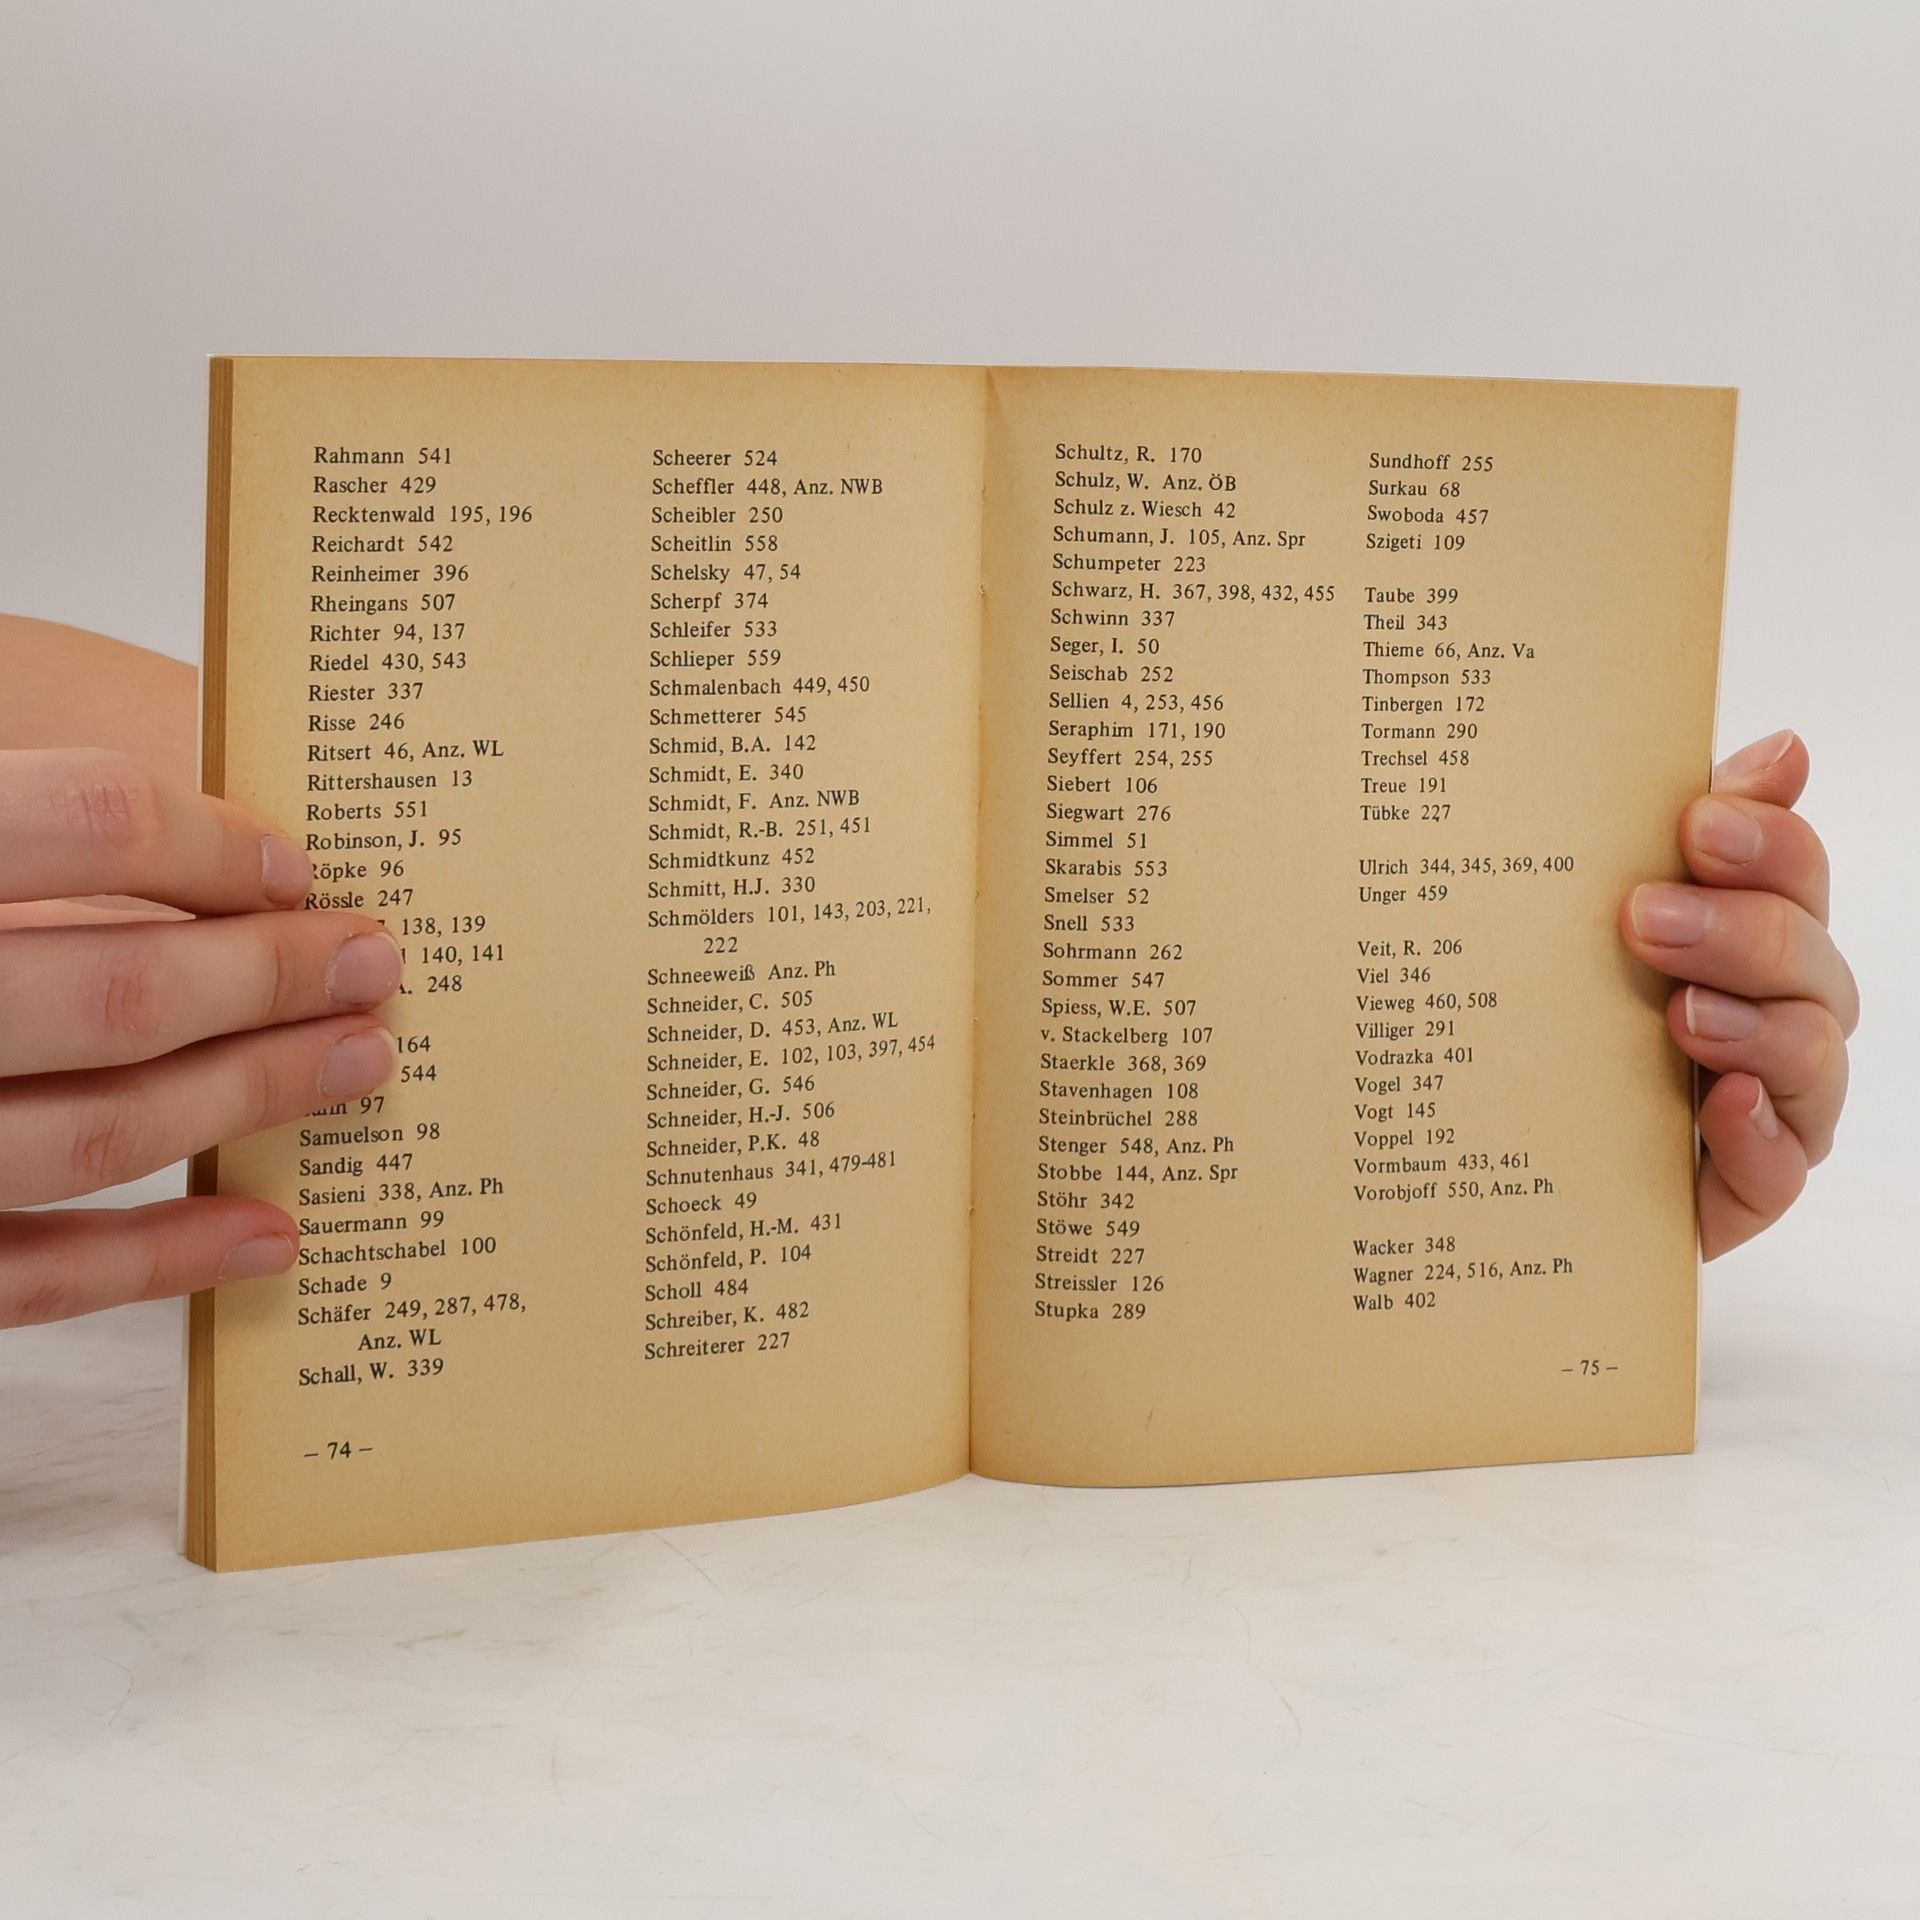 Rahmann 541
Rascher 429
Recktenwald 195, 196
Reichardt 542
Reinheimer 396
Rheingans 507
Richter 94, 137
Riedel 430, 543
Riester 337
Risse 246
Ritsert 46, Anz. WL
Rittershausen 13
Roberts 551
Robinson, J. 95
Röpke 96
Rössle 247
138, 139
140, 141
248
164
544
97
Samuelson 98
Sandig 447
Sasieni 338, Anz. Ph
Sauermann 99
Schachtschabel 100
Schade 9
Schäfer 249, 287, 478,
Anz. WL
Schall, W. 339
– 74 –
Scheerer 524
Scheffler 448, Anz. NWB
Scheibler 250
Scheitlin 558
Schelsky 47, 54
Scherpf 374
Schleifer 533
Schlieper 559
Schmalenbach 449, 450
Schmetterer 545
Schmid, B.A. 142
Schmidt, E. 340
Schmidt, F. Anz. NWB
Schmidt, R.-B. 251, 451
Schmidtkunz 452
Schmitt, H.J. 330
Schmölders 101, 143, 203, 221,
222
Schneeweiß Anz. Ph
Schneider, C. 505
Schneider, D. 453, Anz. WL
Schneider, E. 102, 103, 397, 454
Schneider, G. 546
Schneider, H.-J. 506
Schneider, P.K. 48
Schnutenhaus 341, 479-481
Schoeck 49
Schönfeld, H.-M. 431
Schönfeld, P. 104
Scholl 484
Schreiber, K. 482
Schreiterer 227
Schultz, R. 170
Schulz, W. Anz. ÖB
Schulz z. Wiesch 42
Schumann, J. 105, Anz. Spr
Schumpeter 223
Schwarz, H. 367, 398, 432, 455
Schwinn 337
Seger, I. 50
Seischab 252
Sellien 4, 253, 456
Seraphim 171, 190
Seyffert 254, 255
Siebert 106
Siegwart 276
Simmel 51
Skarabis 553
Smelser 52
Snell 533
Sohrmann 262
Sommer 547
Spiess, W.E. 507
v. Stackelberg 107
Staerkle 368, 369
Stavenhagen 108
Steinbrüchel 288
Stenger 548, Anz. Ph
Stobbe 144, Anz. Spr
Stöhr 342
Stöwe 549
Streidt 227
Streissler 126
Stupka 289
Sundhoff 255
Surkau 68
Swoboda 457
Szigeti 109
Taube 399
Theil 343
Thieme 66, Anz. Va
Thompson 533
Tinbergen 172
Tormann 290
Trechsel 458
Treue 191
Tübke 227
Ulrich 344, 345, 369, 400
Unger 459
Veit, R. 206
Viel 346
Vieweg 460, 508
Villiger 291
Vodrazka 401
Vogel 347
Vogt 145
Voppel 192
Vormbaum 433, 461
Vorobjoff 550, Anz. Ph
Wacker 348
Wagner 224, 516, Anz. Ph
Walb 402
– 75 –